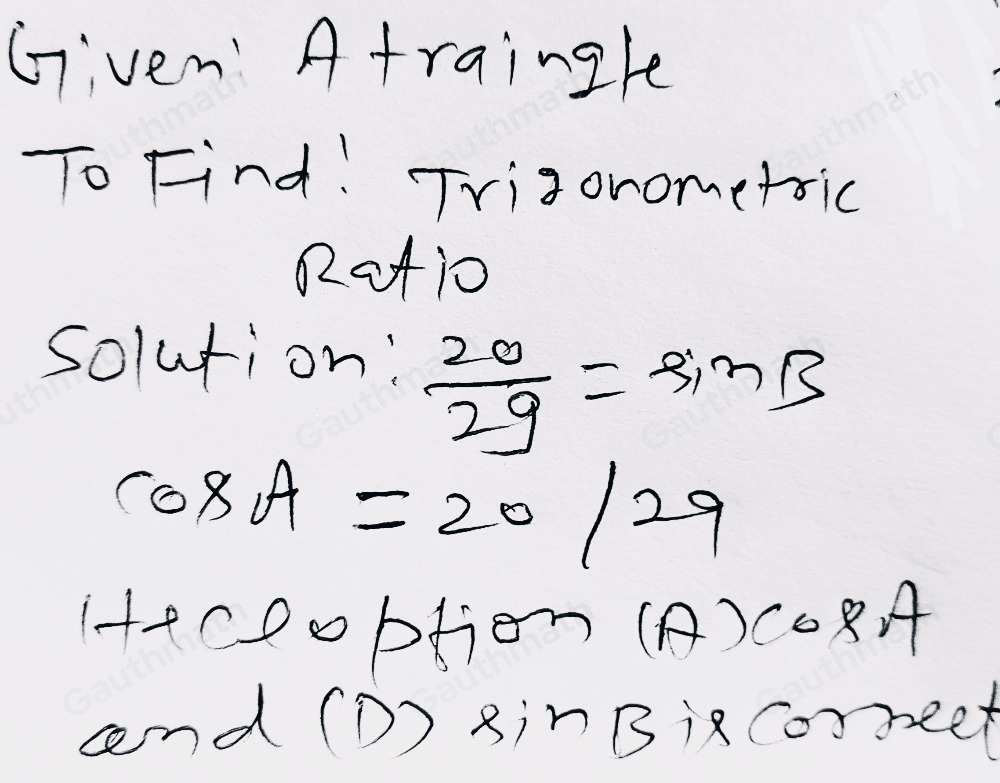 Given: A traingle
To Find! Trigonometric
Ratio
Solution: 20/29 = sinB
cosA = 20/29
Hecl option (A) cosA
and (D) sinB is correct
Gauthmath